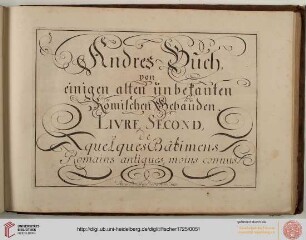 Andres Buch,
von
einigen alten unbekanten
Römischen Gebäuden.
LIVRE SECOND,
de
quelques Bâtimens
Romains antiques moins connus.
http://digi.ub.uni-heidelberg.de/diglit/fischer1725/0051
UNIVERSITÄTS-
BIBLIOTHEK
HEIDELBERG